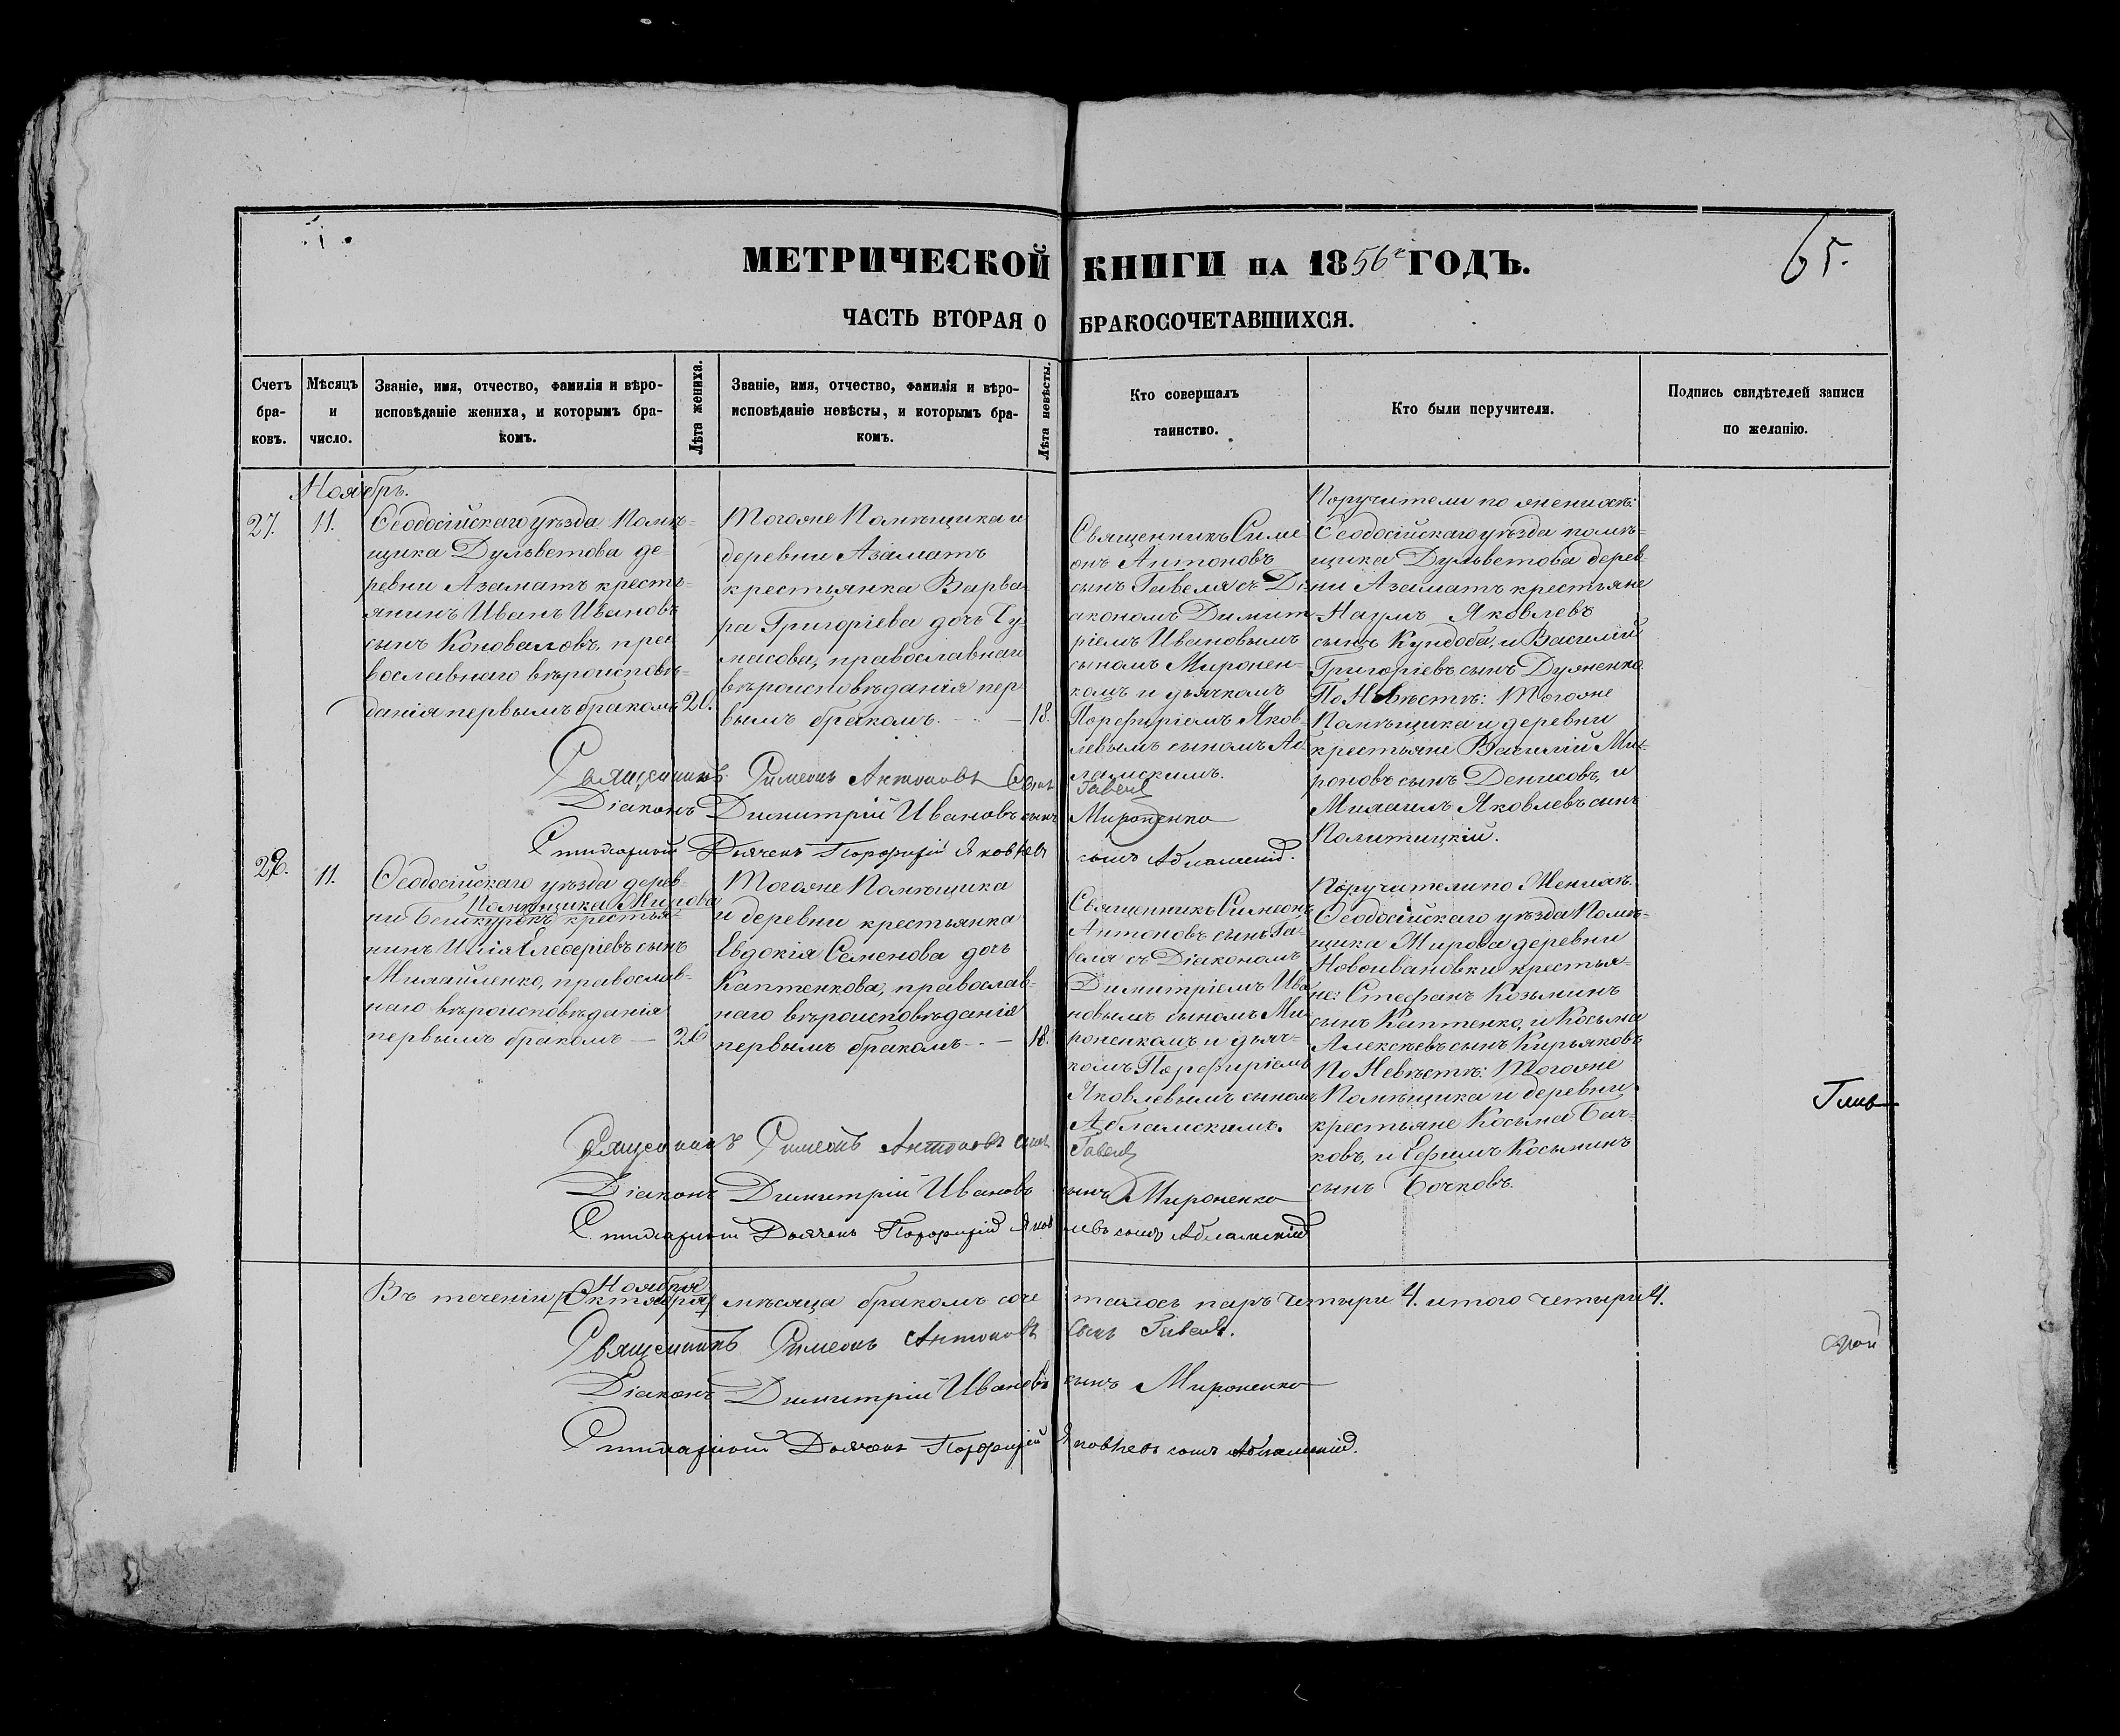 65.
МЕТРИЧЕСКОЙ КНИГИ НА 1856г ГОДЪ.
ЧАСТЬ ВТОРАЯ О БРАКОСОЧЕТАВШИХСЯ.
Счетъ
бра-
ковъ.
Мѣсяцъ
и
число.
Званіе, имя, отчество, фамилія и вѣро-
исповѣданіе жениха, и которымъ бра-
комъ.
Лѣта жениха.
Званіе, имя, отчество, фамилія и вѣро-
исповѣданіе невѣсты, и которымъ бра-
комъ.
Лѣта невѣсты.
Кто совершалъ
таинство.
Кто были поручители.
Подпись свидѣтелей записи
по желанію.
Ноябрь.
27.
11.
Ѳеодосійскаго уѣзда Помѣ-
щика Дульветова де-
ревни Азаматъ кресть-
янинъ Иванъ Ивановъ
сынъ Коноваловъ, пра
вославнаго вѣроисповѣ-
данія первымъ бракомъ
20.
Тогоже Помѣщика и
деревни Азаматъ
крестьянка Варва
ра Григоріева дочь Ту
масова, православнаго
вѣроисповѣданія пер
вымъ бракомъ. -
18.
Священникъ Симе
онъ Антоновъ
сынъ Гавеля съ Ді-
акономъ Димит
ріемъ Ивановымъ
сыномъ Миронен-
комъ и дьячкомъ
Порфиріемъ Яков-
левымъ сыномъ Аб-
ламскимъ.
Поручители по женихѣ:
Ѳеодосійскаго уѣзда помѣ-
щика Дульветова дерев-
ни Азаматъ крестьяне
Наумъ Яковлевъ
сынъ Кундоба, и Василій
Григоріевъ сынъ Дуженко.
По Невѣстѣ: Тогоже
Помѣщика и деревни
крестьяне Василій Ми-
роновъ сынъ Денисовъ, и
Михаилъ Яковлевъ сынъ
Политицкій.
Священникъ Симеонъ Антоновъ Сынъ Гавель
Діаконъ Димитрій Ивановъ сынъ Мироненко
Дьячекъ Порфирій Яковлевъ сынъ Абламскій.
28.
11.
Ѳеодосійскаго уѣзда дерев-
Помѣщика Мирова
ни Бешкурекъ крестья-
нинъ Илія Елеѳеріевъ сынъ
Михайленко, православ-
наго вѣроисповѣданія
первымъ бракомъ —
26
Тогоже Помѣщика
и деревни крестьянка
Евдокія Семенова дочь
Каптенкова, православ-
наго вѣроисповѣданія
первымъ бракомъ. -
18.
Священникъ Симеонъ
Антоновъ сынъ Га-
веля съ Діакономъ
Димитріемъ Ива
новымъ сыномъ Ми-
роненкомъ и дьяч-
комъ Порфиріемъ
Яковлевымъ сыномъ
Абламскимъ.
Поручители по Женихѣ.
Ѳеодосійскаго уѣзда Помѣ-
щика Мирова деревни
Новоивановки крестья-
не: Стефанъ Козьминъ
сынъ Каптенко, и Косьма
Алексѣевъ сынъ Кирьяковъ
По Невѣстѣ: Тогоже
Помѣщика и деревни
крестьяне Косьма Боч-
ковъ, и Ефимъ Косьминъ
сынъ Бочковъ.
Священникъ Симеонъ Антоновъ сынъ Гавель
Діаконъ Димитрій Ивановъ сынъ Мироненко
Дьячекъ Порфирій Яковлевъ сынъ Абламскій
Ноября
Въ теченіи [Октября] мѣсяца бракомъ соче талось паръ четыри 4. итого четыри 4.
Священникъ Симеонъ Антоновъ Сынъ Гавель.
Діаконъ Димитрій Ивановъ сынъ Мироненко
Дьячекъ Порфирій Яковлевъ сынъ Абламскій.